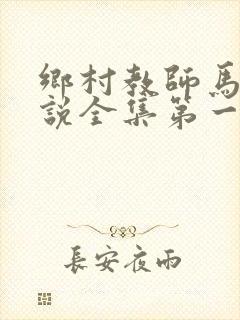 鄉村教師馬
說全集第一
長安夜雨